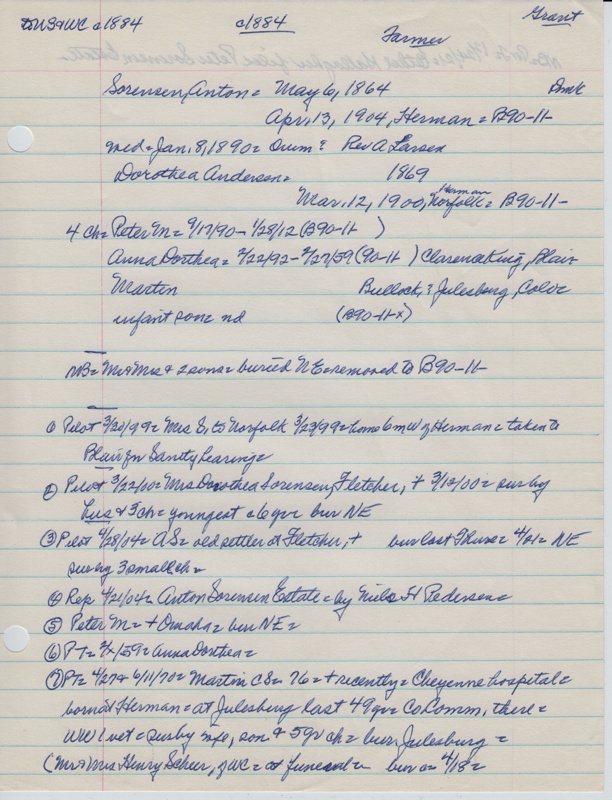 to US & WC c1884 c1884 Grant
Farmer
Sorensen, Anton = May 6, 1864 Dmk
Apr. 13, 1904, Herman = B90-11-
med = Jan. 8, 1890 = Rev A. Larsen
Dorothea Andersen = 1869
Mar. 12, 1900, Norfolk = B90-11-
Herman
4 ch = Peter M = 9/17/90 - 1/28/12 (B90-11- )
Anna Dorthea = 2/22/92 - 2/27/59 (90-11- ) Clarence King, Blair
Martin Bullock, ? Julesburg, Colo =
infant son = nd (B90-11-x)
NB = Mr & Mrs & 2 sons = buried NE = removed to B90-11-
① Pilot 3/30/99 = Mrs S. to Norfolk 3/23/99 = home 6 m W of Herman = taken to
Blair for Sanity hearing =
② Pilot 3/22/00 = Mrs Dorothea Sorensen, Fletcher, + 3/12/00 = sur by
hus & 3 ch = youngest c6 yr = bur NE
③ Pilot 4/28/04 = AS = old settler at Fletcher, + bur last Thurs = 4/21 = NE
sur by 3 small ch =
④ Rep 4/21/04 = Anton Sorensen Estate = by Niels H Pedersen =
⑤ Peter M = + Omaha = bur NE =
⑥ PT = /59 = Anna Dorthea =
⑦ PT = 4/27 & 6/11/70 = Martin CS = 76 = + recently = Cheyenne hospital =
born at Herman = at Julesburg last 49 yr = Co Comm. there =
WW I vet = sur by wife, son & 5 gr ch = bur Julesburg =
(Mr & Mrs Henry Scheer, of WC = at funeral = bur on 4/18 =